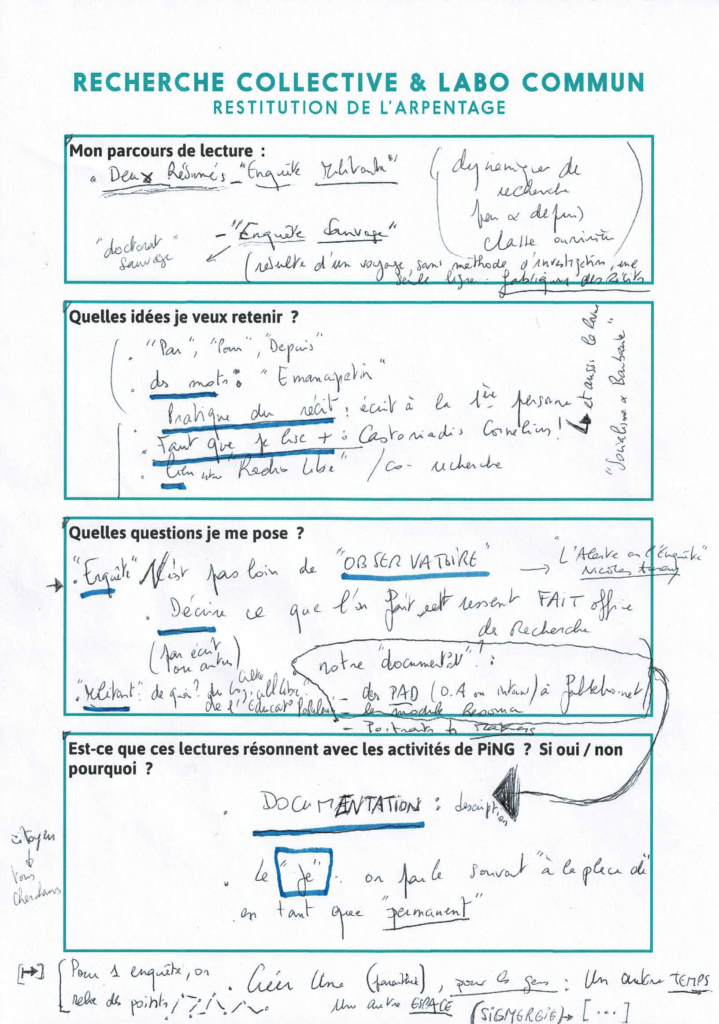 RECHERCHE COLLECTIVE & LABO COMMUN
RESTITUTION DE L'ARPENTAGE
Mon parcours de lecture :
• Deux Résumés - "Enquête Militante"
(dynamiques de
recherche
classe ouvrière)
- "Enquête Sauvage"
"doctorat
sauvage"
(résulte d'un voyage, sans méthode d'investigation, une
seule ligne : fabriquer des Récits
Quelles idées je veux retenir ?
. "Par", "Pour", "Depuis"
. des mots : "Emancipation"
Pratique du récit : écrit à la 1ère personne
. Faut que je lise + : Castoriadis Cornélius !
→ et aussi le livre
"Socialisme ou Barbarie"
. lien "Radio Libre" / co-recherche
Quelles questions je me pose ?
→ . "Enquête" N'est pas loin de "OBSERVATOIRE"
→ "L'Alerte ou l'Enquête"
Nicolas
. Décrire ce que l'on fait et ressent FAIT office
de Recherche
(par écrit
ou autre)
notre "documentat°" :
. "Militant" de quoi ? du Logiciel libre
de l'Éducat° Populaire
- des PAD (O.A ou interne) à fablabo.net
- les modules Resoma
- Portraits +
Est-ce que ces lectures résonnent avec les activités de PiNG ? Si oui / non
pourquoi ?
. DOCUMENTATION : description
. Le "je" : on parle souvent "à la place de"
en tant que "permanent"
citoyen
↓
tous
chercheurs
[↦] Pour 1 enquête, on
relie des points
. Créer Une (parenthèse), pour les gens : Un autre TEMPS
Un autre ESPACE
(SIGMERGIE) → [...]